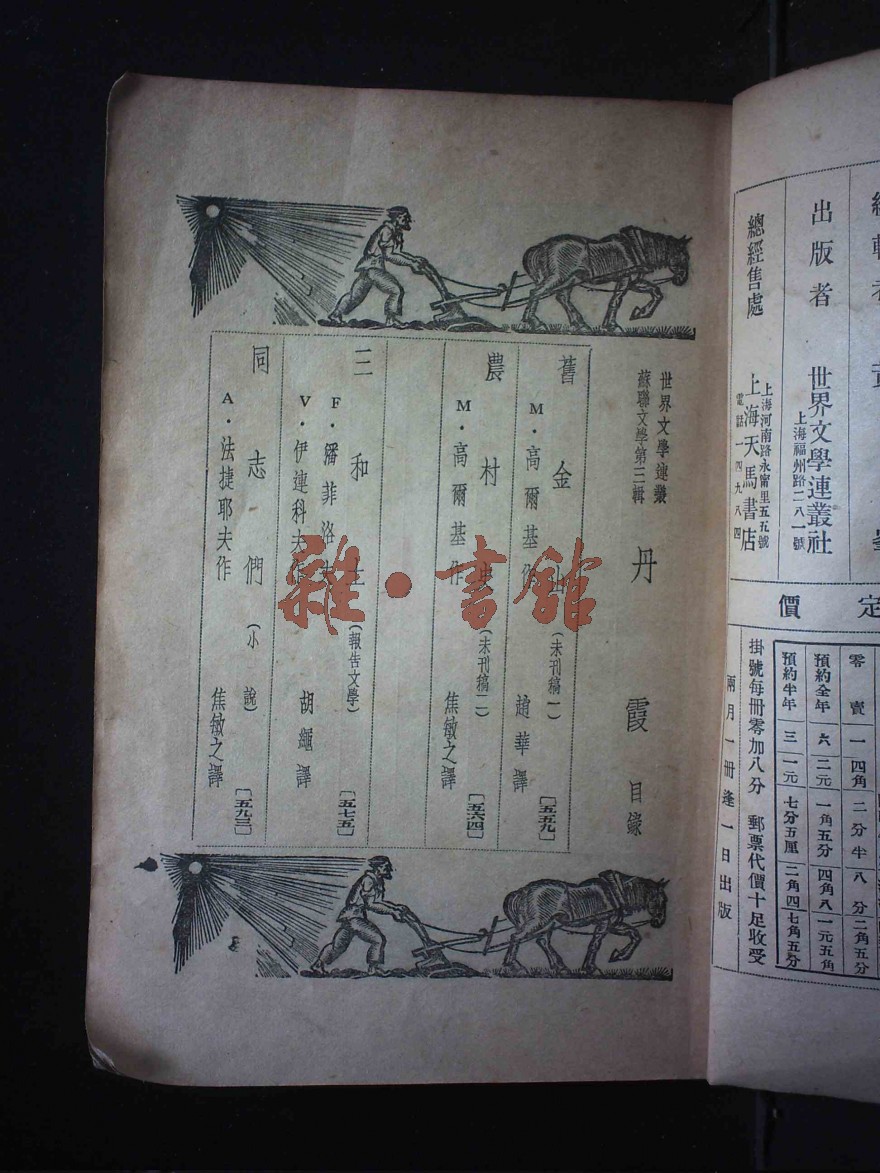 世界文學連叢
蘇聯文學第三輯
丹霞 目錄
舊金山(未刊稿一)[五五九]
M·高爾基作 趙華譯
農村史(未刊稿二)[五六四]
M·高爾基作 焦敏之譯
三和土(報告文學)[五七五]
F·潘菲洛夫
V·伊連科夫作 胡繩譯
同志們(小說)[五九三]
A·法捷耶夫作 焦敏之譯
雜·書館
出版者 世界文學連叢社
上海福州路二八一號
總經售處 上海天馬書店
上海河南路永甯里五五號
電話一四九八四
定價
零賣 一 四角 二分半 八分 二角五分
預約全年 六 二元 一角五分 四角八 一元五角
預約半年 三 一元 七分五厘 二角四 七角五分
掛號每冊零加八分 郵票代價十足收受
兩月一冊逢一日出版